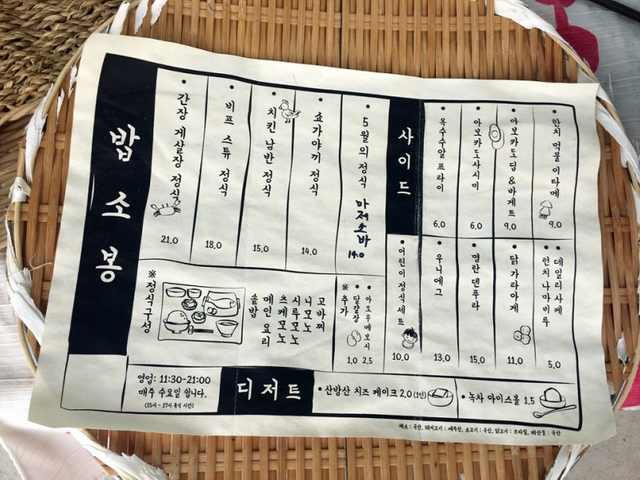 밥 소 봉
간장 게살장 정식
21.0
비프 스튜 정식
18.0
치킨 남반 정식
15.0
쇼가야끼 정식
14.0
5월의 정식 마제소바
14.0
사이드
옥수수알 프라이
6.0
아보카도사시미
6.0
아보카도딥&바게트
9.0
한치 먹물 이타메
9.0
어린이 정식 세트
10.0
우니에그
13.0
명란 덴푸라
15.0
닭 가라아게
11.0
데일리 사케
런치 나마비루
5.0
※정식구성
솥밥
메인 요리
츠케모노
시루모노
니모노
고바찌
※추가
달걀장
1.0
2.5
영업: 11:30-21:00
매주 수요일 쉽니다.
디저트
산방산 치즈 케이크 2.0
녹차 아이스볼 1.5